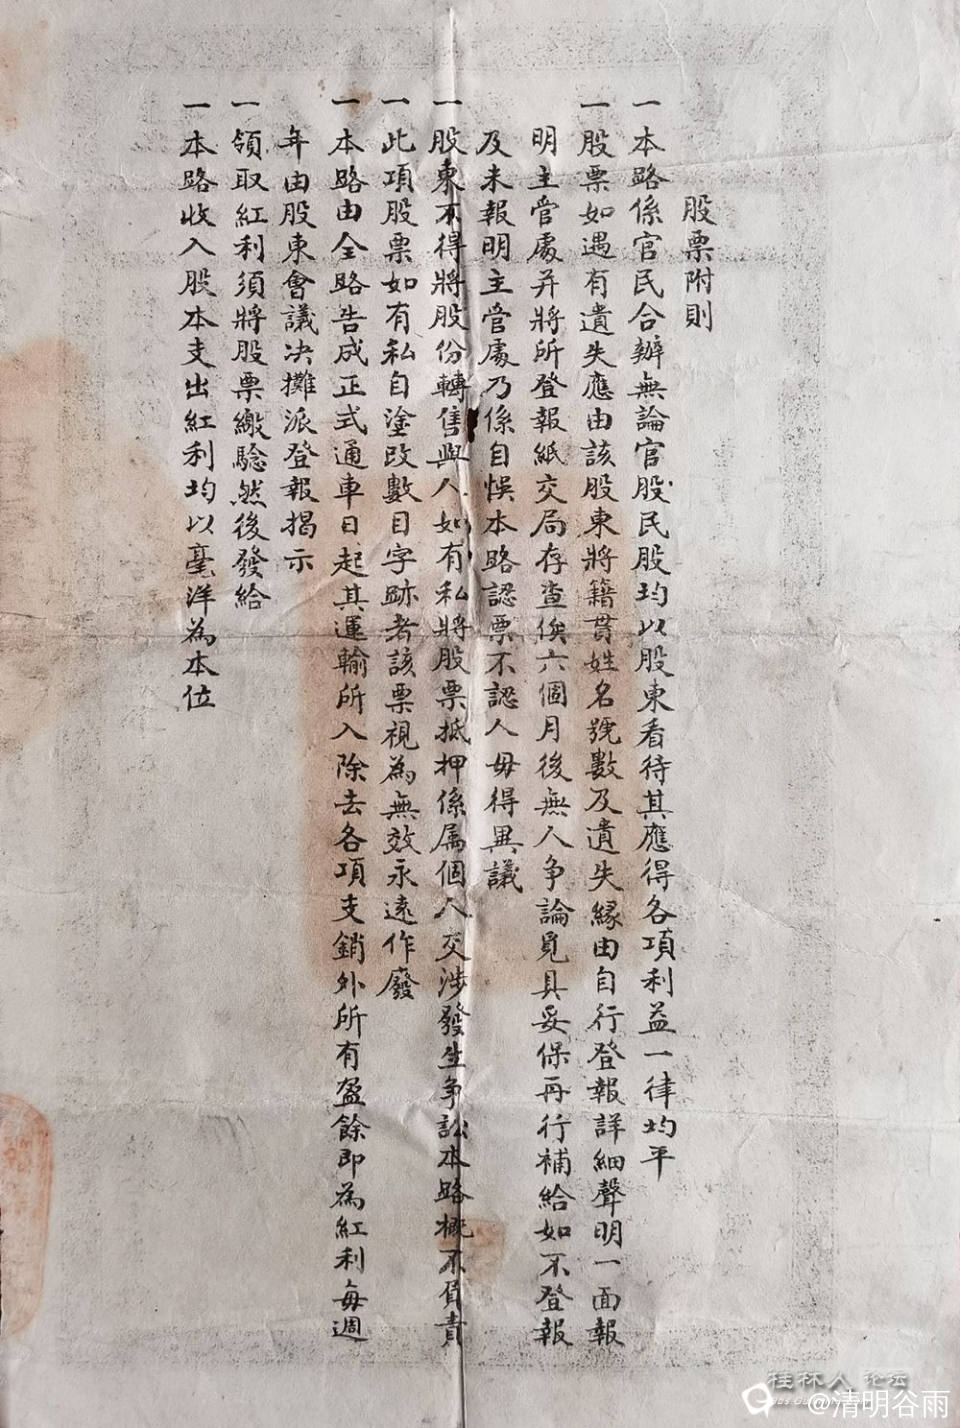 股票附則
一本路係官民合辦無論官股民股均以股東看待其應得各項利益一律均平
一股票如遇有遺失應由該股東將籍貫姓名號數及遺失緣由自行登報詳細聲明一面報
明主管處并將所登報紙交局存查俟六個月後無人争論覓具妥保再行補給如不登報
及未報明主管處乃係自悞本路認票不認人毋得異議
一股東不得將股份轉售與人如有私將股票抵押係属個人交涉發生爭訟本路概不負責
一此項股票如有私自塗改數目字跡者該票視為無效永遠作廢
一本路由全路告成正式通車日起其運輸所入除去各項支銷外所有盈餘即為紅利每週
年由股東會議决攤派登報揭示
一領取紅利須將股票繳驗然後發給
一本路收入股本支出紅利均以毫洋為本位
桂林人论坛
@清明谷雨